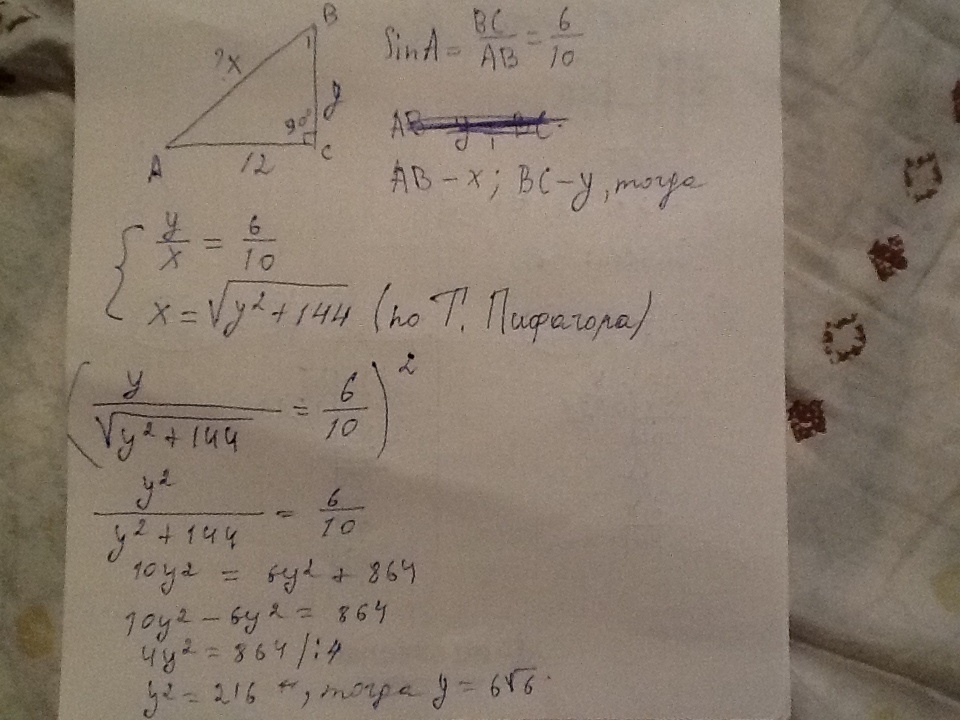 B
?x
1
y
90°
A
12
C
SinA = BC/AB = 6/10
AB – x; BC – y, тогда
{ y/x = 6/10
x = √(y² + 144) (по Т. Пифагора)
( y/√(y² + 144) = 6/10 )²
y²/(y² + 144) = 6/10
10y² = 6y² + 864
10y² – 6y² = 864
4y² = 864 /:4
y² = 216, тогда y = 6√6.